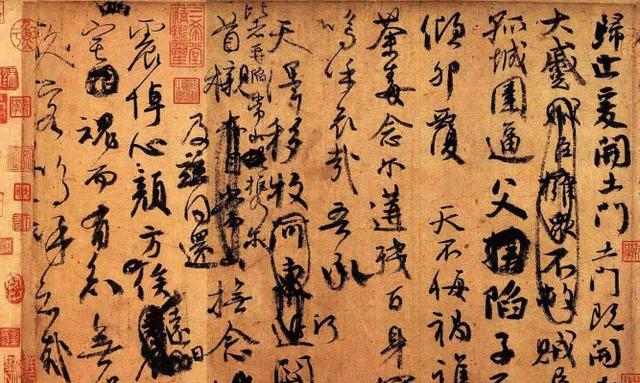 歸止爰開土門土門既開
大蹙賊臣擁衆不救賊
孤城圍逼父陷子
傾卵覆天不悔禍誰
荼毒念爾遘殘百身
嗚呼哀哉吾承
天澤移牧河東近
比者再陷常山攜爾
首櫬亦自常山撫念
及茲同還
震悼心顏方俟遠日
宅魂而有知無
嗟久客嗚呼哀哉